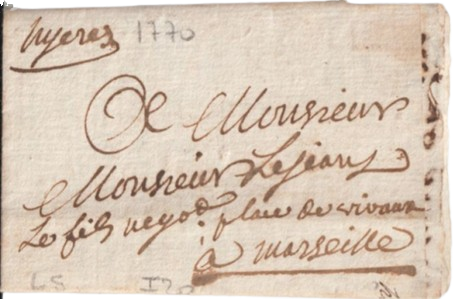 hyeres 1770
A Monsieur
Monsieur Lejeans
Le fils negot. place de vivaux
à marseille
LS